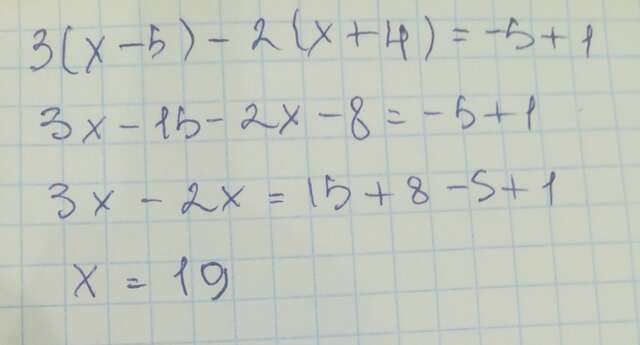 3(x-5)-2(x+4)=-5+1
3x-15-2x-8=-5+1
3x-2x=15+8-5+1
x=19